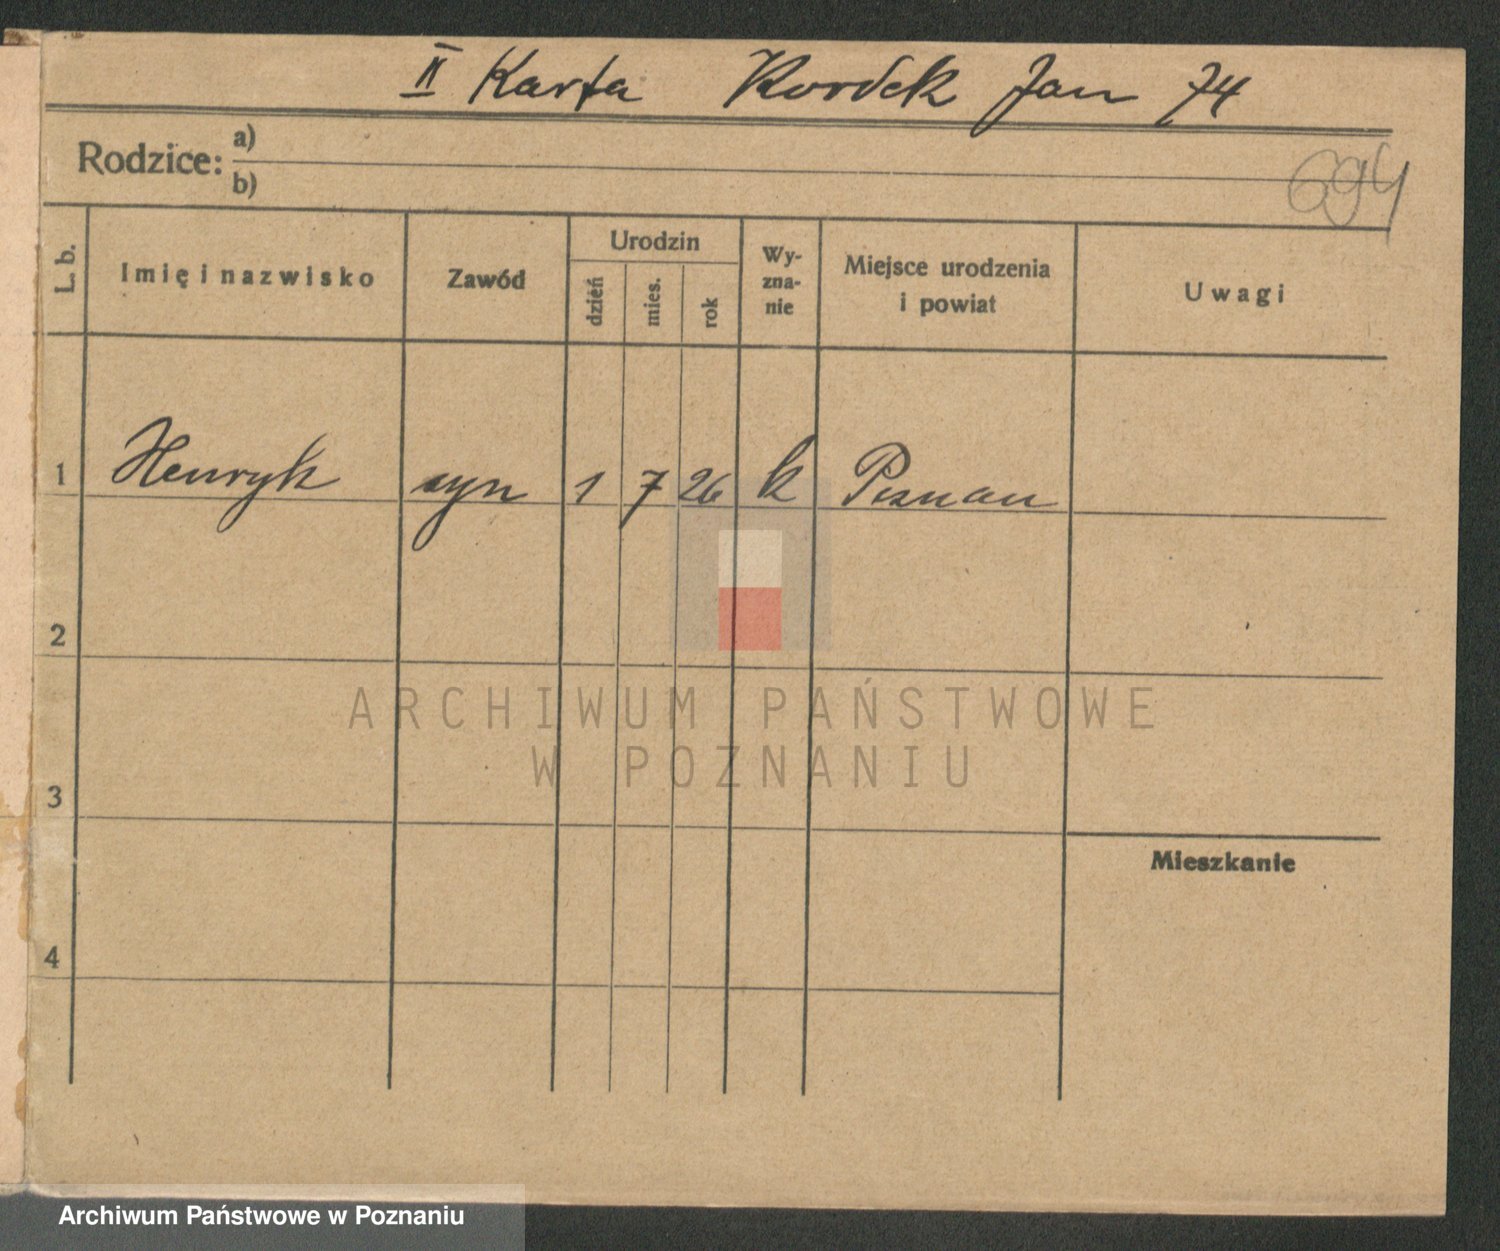 II Karta Kordek Jan 74
Rodzice: a)
b)
694
L. b. Imię i nazwisko Zawód Urodzin dzień mies. rok Wy-zna-nie Miejsce urodzenia i powiat Uwagi
1 Henryk syn 1 7 26 k Poznan
2
ARCHIWUM PAŃSTWOWE
W POZNANIU
3
Mieszkanie
4
Archiwum Państwowe w Poznaniu